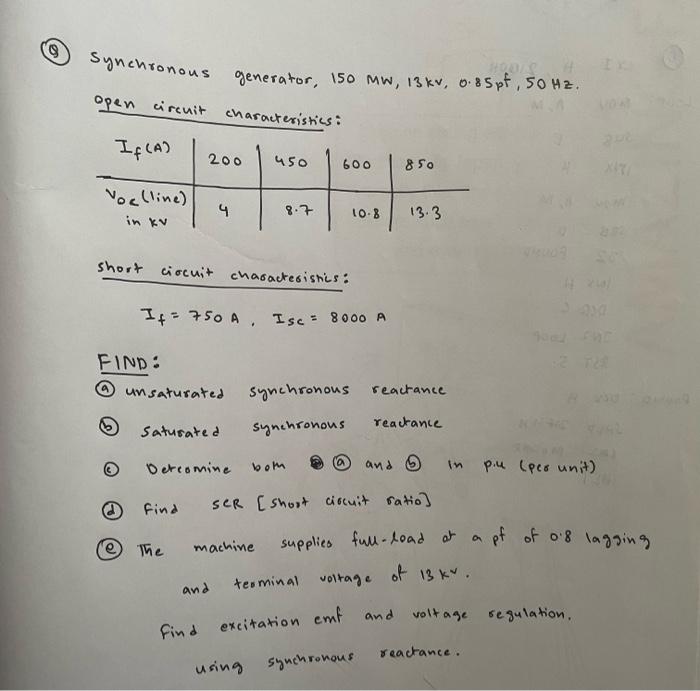 Q Synchronous generator, 150 MW, 13 kv, 0.85 pf, 50 HZ.
open circuit characteristics:
If (A) 200 450 600 850
Voc (line) in kv 4 8.7 10.8 13.3
short circuit characteristics:
If = 750 A, Isc = 8000 A
FIND:
(a) unsaturated synchronous reactance
(b) saturated synchronous reactance
(c) Determine both (a) and (b) in p.u (per unit)
(d) Find SCR [short circuit ratio]
(e) The machine supplies full-load at a pf of 0.8 lagging
and terminal voltage of 13 kv.
Find excitation emf and voltage regulation,
using synchronous reactance.